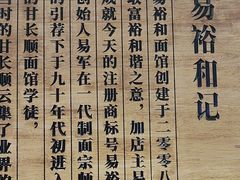 易裕和记
易裕和面馆创建于二零零八
取富裕和谐之意，加店主易
成就今天的注册商标号易裕
创始人易军在一代制面宗师
的引荐下于九十年代初进入
的甘长顺面馆学徒，
当时的甘长顺云集了业界的